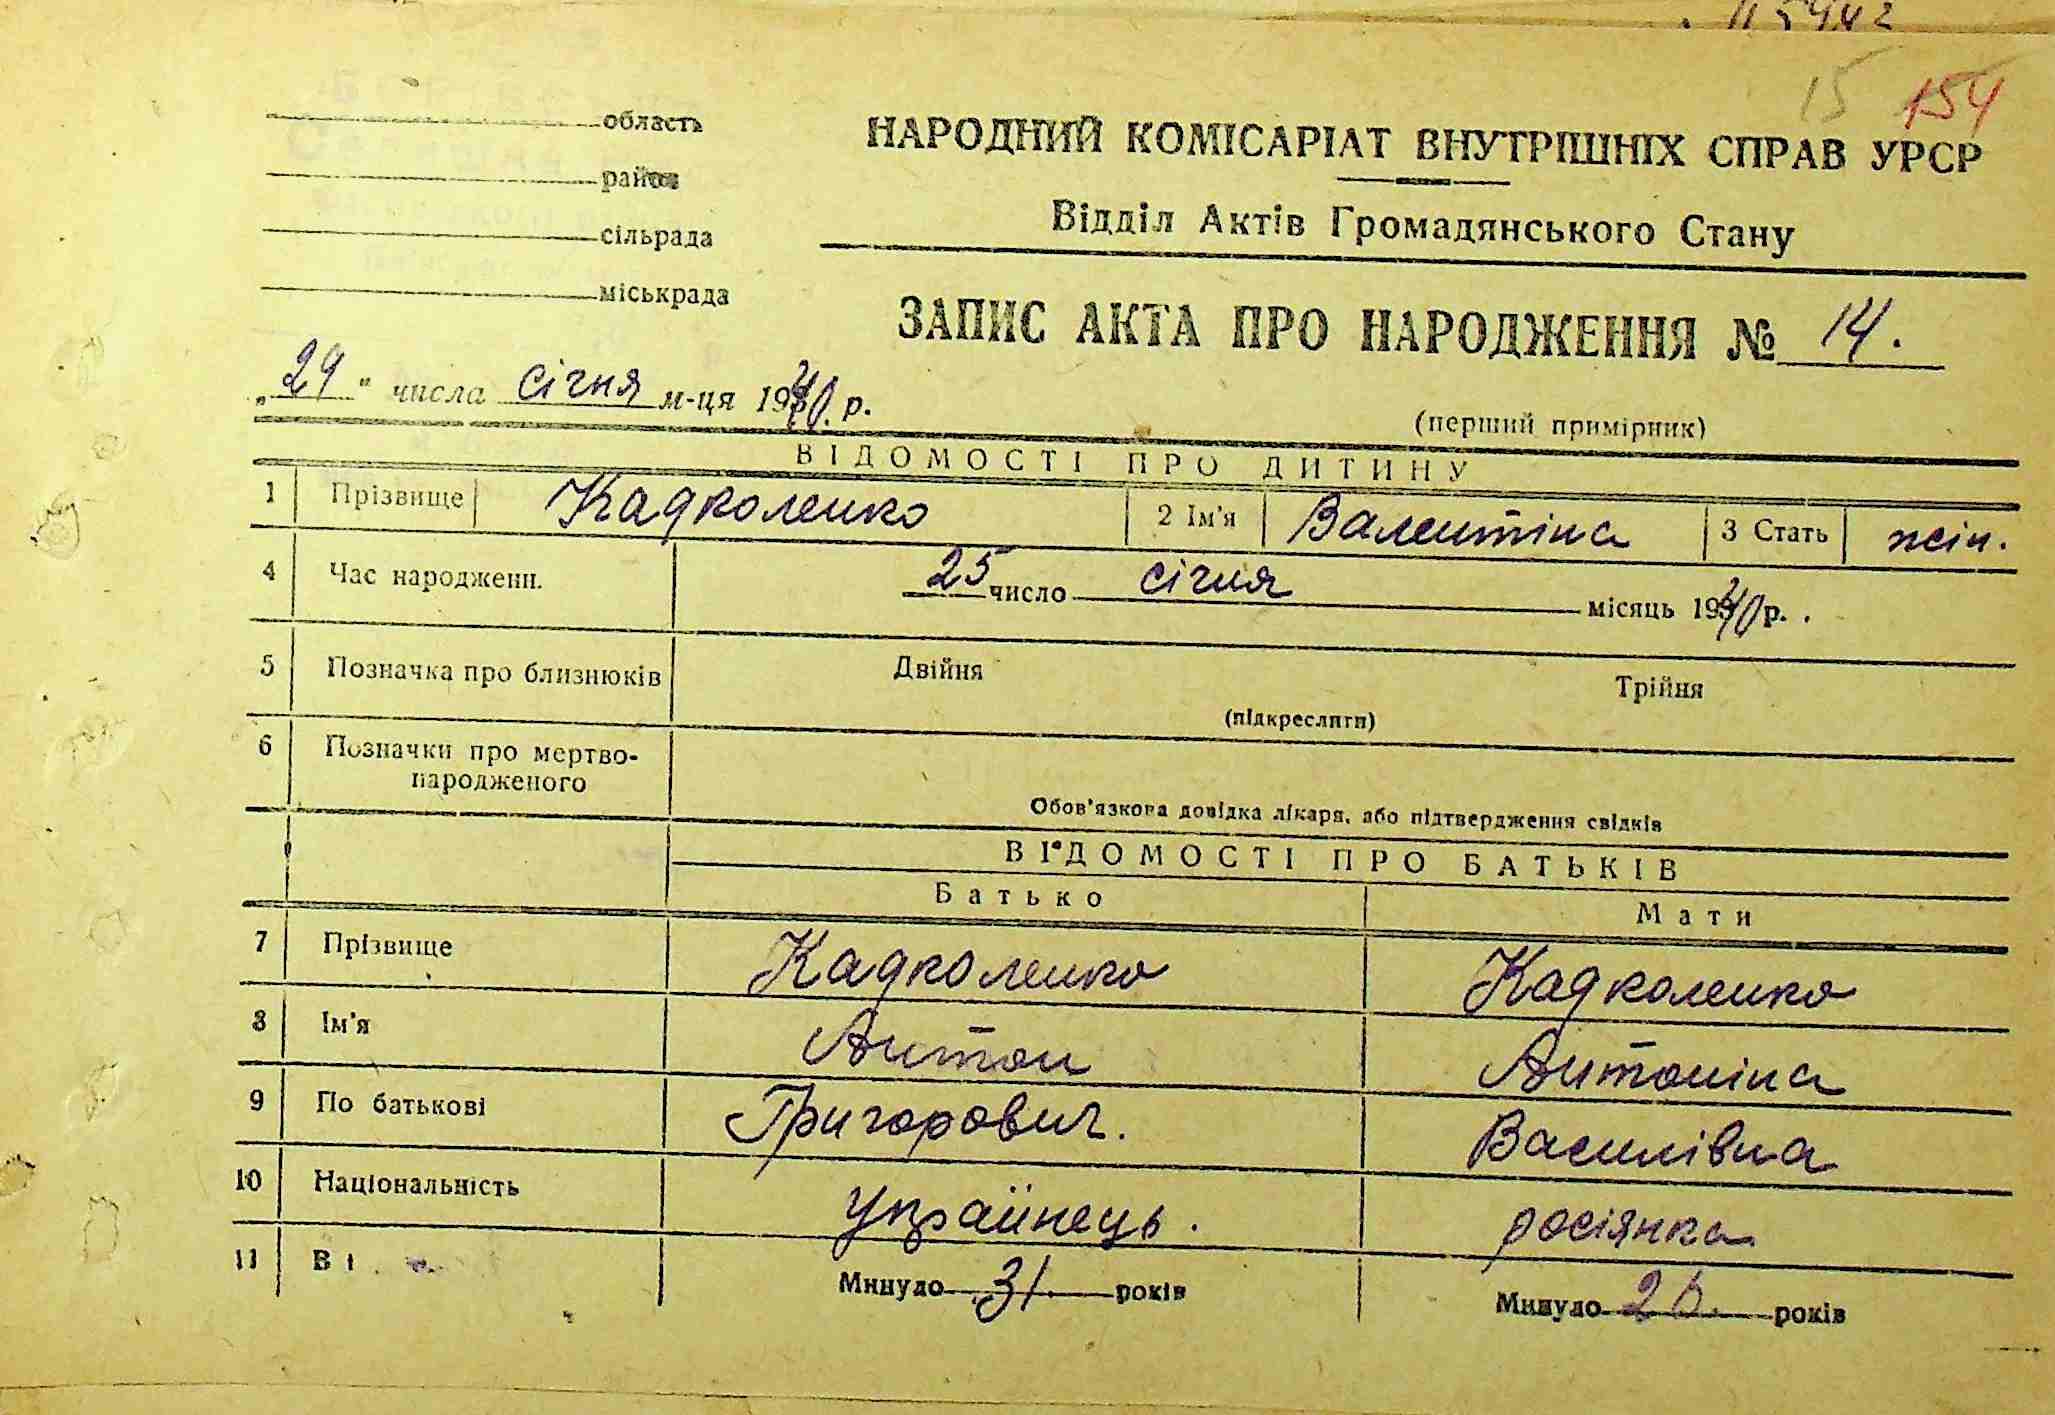 15 154
область
НАРОДНИЙ КОМІСАРІАТ ВНУТРІШНІХ СПРАВ УРСР
район
сільрада
Відділ Актів Громадянського Стану
міськрада
ЗАПИС АКТА ПРО НАРОДЖЕННЯ № 14.
„29" числа січня м-ця 1940. р.
(перший примірник)
ВІДОМОСТІ ПРО ДИТИНУ
1 Прізвище Кадколенко 2 Ім'я Валентіна 3 Стать жін.
4 Час народженн. 25 число січня місяць 1940 р.
5 Позначка про близнюків Двійня Трійня
(підкреслити)
6 Позначки про мертво-
народженого
Обов'язкова довідка лікаря, або підтвердження свідків
ВІДОМОСТІ ПРО БАТЬКІВ
Батько Мати
7 Прізвище Кадколенко Кадколенко
8 Ім'я Антон Антоніна
9 По батькові Григорович. Василівна
10 Національність українець. росіянка
11 Ві Минуло 31. років Минуло 26. років